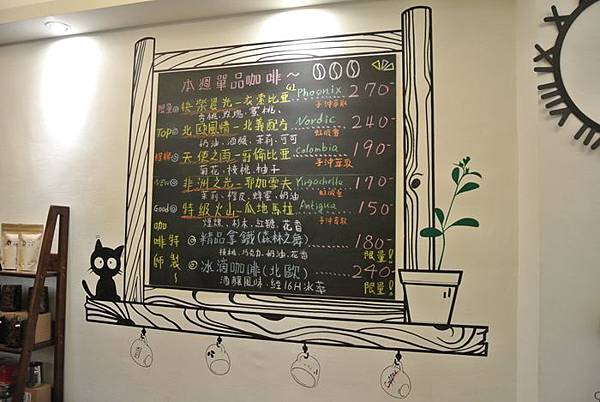 本週單品咖啡～
限量◎快樂晨光－衣索比亞G1 Phoenix 270-
杏桃、玫瑰、蜜桃、 手沖萃取
Top◎北歐風情－北義配方 Nordic 240-
奶油、油酸、茉莉、可可 虹吸壺
招牌◎天使之雨－哥倫比亞 Colombia 190-
菊花、核桃、柚子 手沖萃取
NEW◎非洲之光－耶加雪夫 Yirgacheffe 170-
茉莉、橙皮、蜂蜜、奶油 虹吸壺
Good◎特級火山－瓜地馬拉 Antigua 150-
煙燻、杉木、紅糖、花香 手沖萃取
咖啡師特製～
◎精品拿鐵(森林之舞) 180-
核桃、巧克力、奶油、花香 限量!
◎冰滴咖啡(北歐) 240-
酒釀風味、經16H冰萃 限量!
Coffee